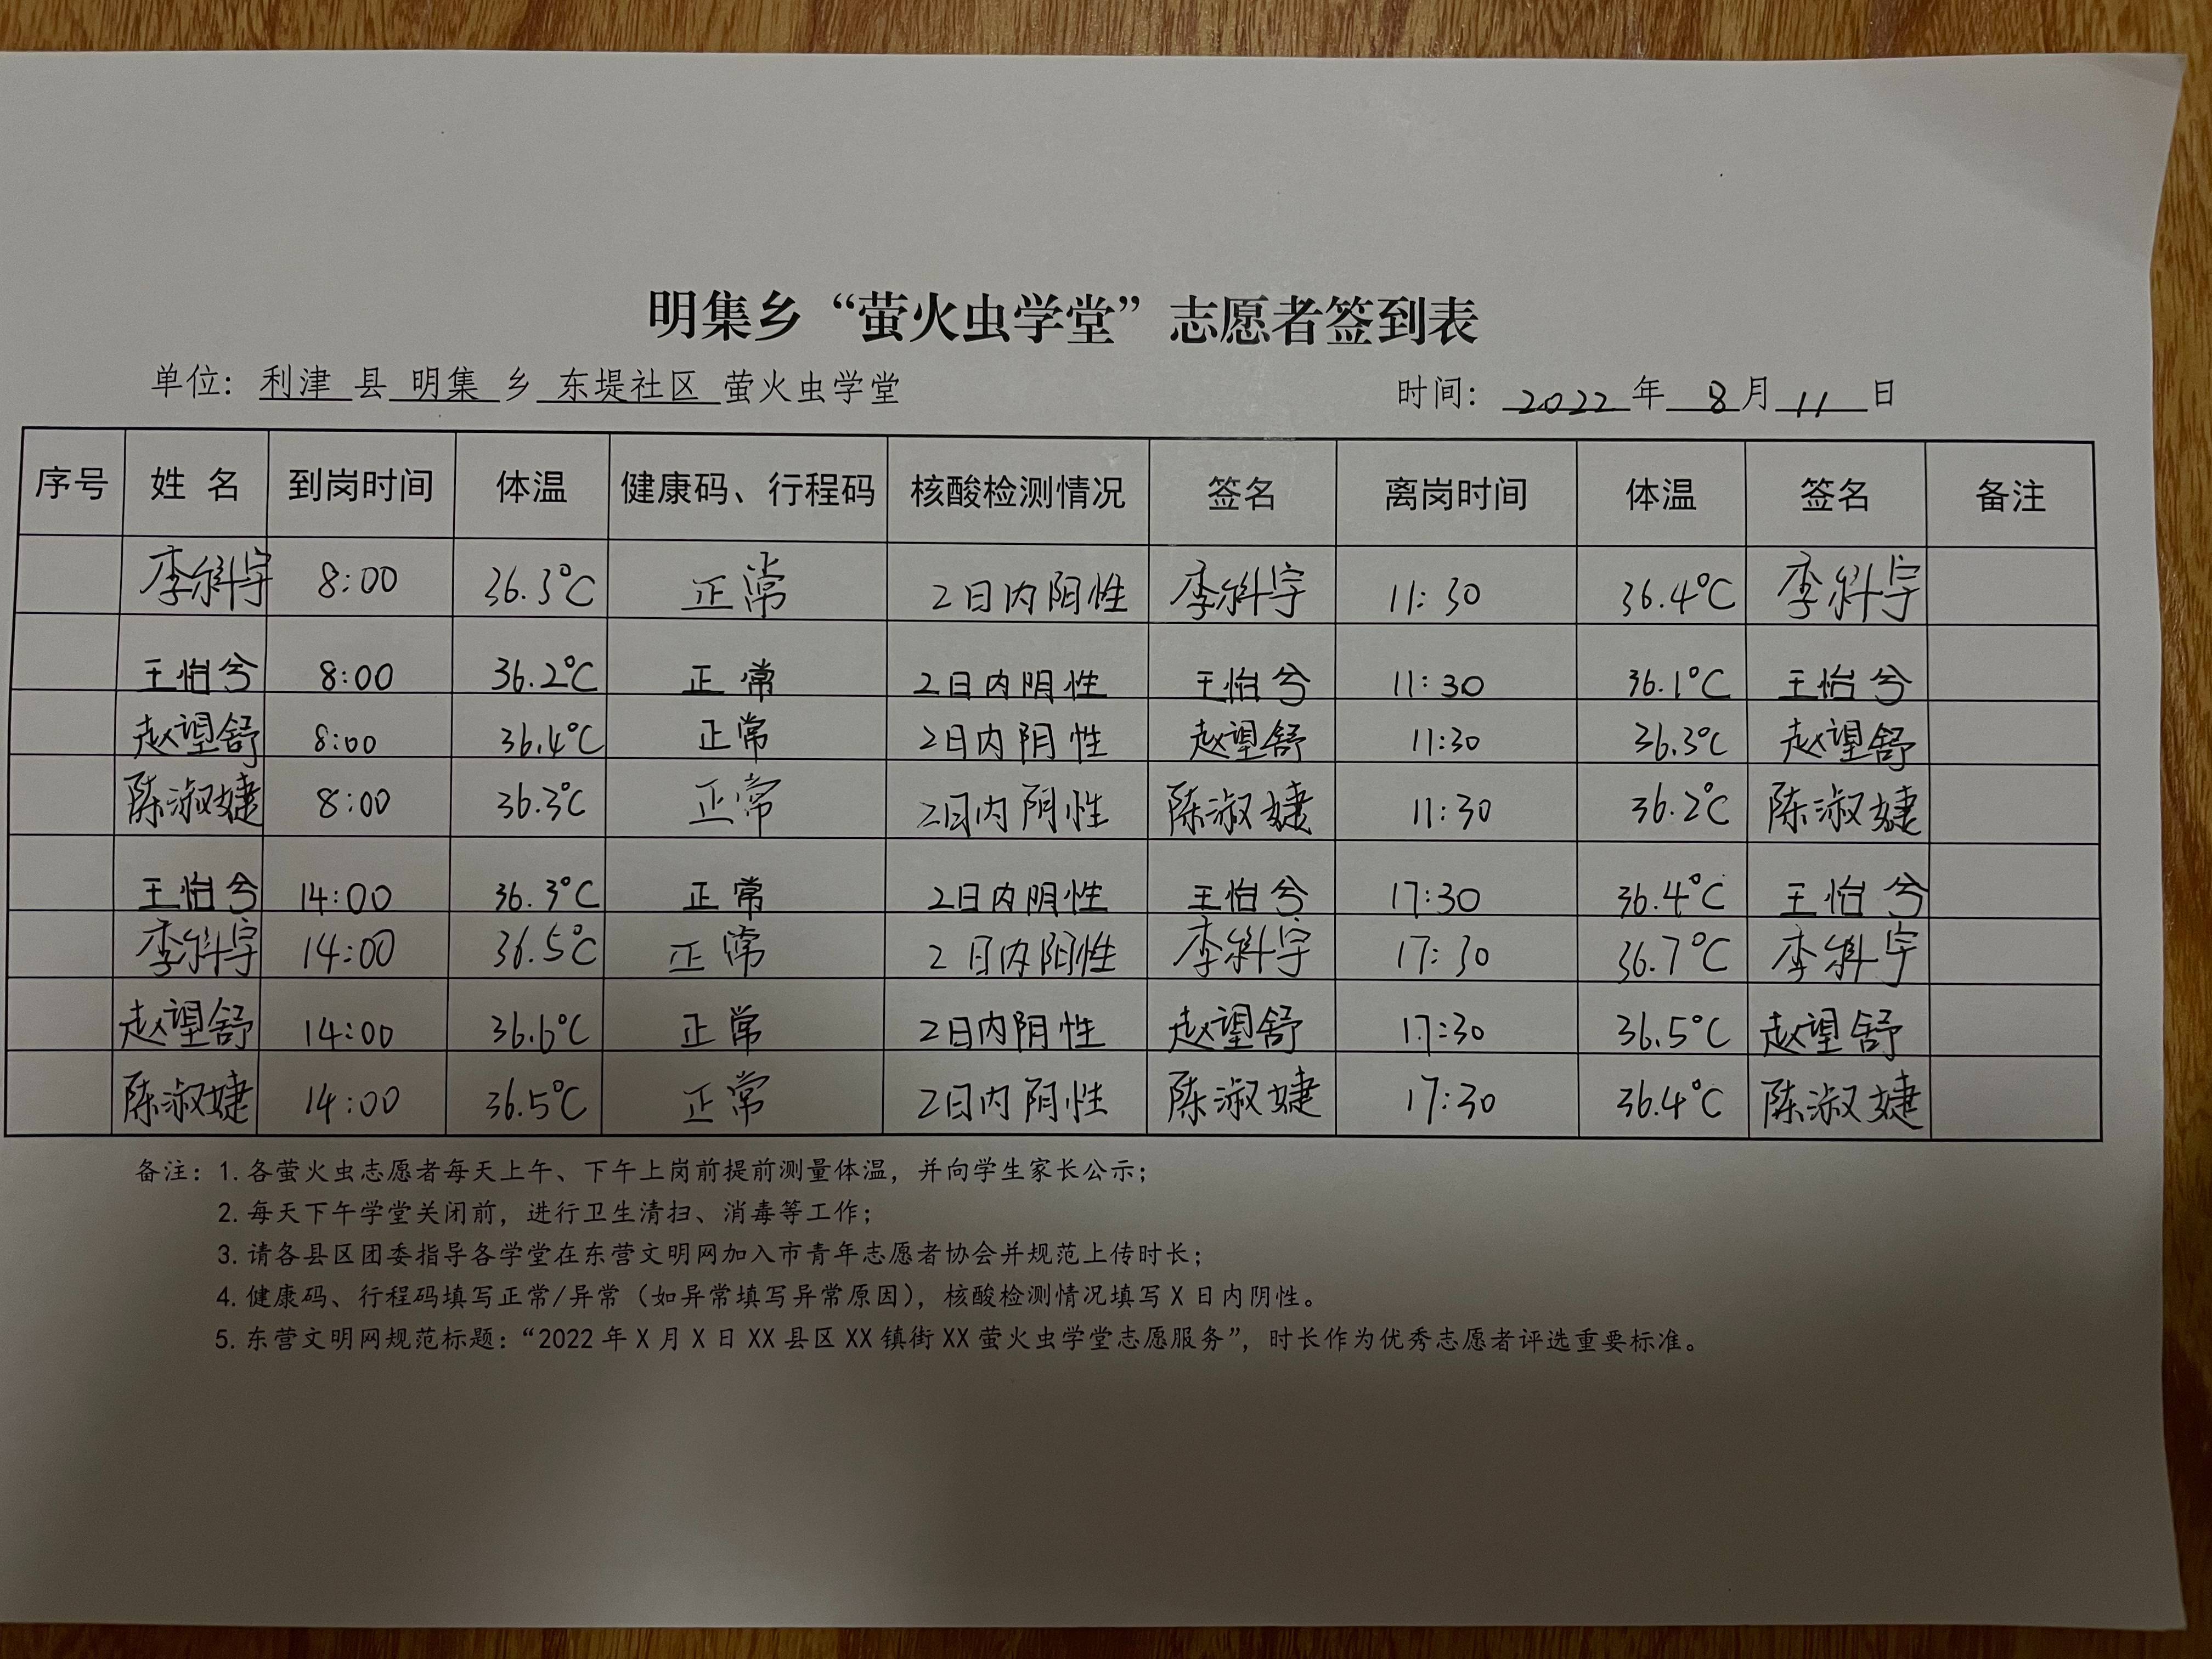 明集乡“萤火虫学堂”志愿者签到表
单位：利津 县 明集 乡 东堤社区 萤火虫学堂 时间： 2022 年 8 月 11 日
序号 姓 名 到岗时间 体温 健康码、行程码 核酸检测情况 签名 离岗时间 体温 签名 备注
李科宇 8:00 36.3℃ 正常 2日内阴性 李科宇 11:30 36.4℃ 李科宇
王怡兮 8:00 36.2℃ 正常 2日内阴性 王怡兮 11:30 36.1℃ 王怡兮
赵望舒 8:00 36.4℃ 正常 2日内阴性 赵望舒 11:30 36.3℃ 赵望舒
陈淑婕 8:00 36.3℃ 正常 2日内阴性 陈淑婕 11:30 36.2℃ 陈淑婕
王怡兮 14:00 36.3℃ 正常 2日内阴性 王怡兮 17:30 36.4℃ 王怡兮
李科宇 14:00 36.5℃ 正常 2日内阴性 李科宇 17:30 36.7℃ 李科宇
赵望舒 14:00 36.6℃ 正常 2日内阴性 赵望舒 17:30 36.5℃ 赵望舒
陈淑婕 14:00 36.5℃ 正常 2日内阴性 陈淑婕 17:30 36.4℃ 陈淑婕
备注：1. 各萤火虫志愿者每天上午、下午上岗前提前测量体温，并向学生家长公示；
2. 每天下午学堂关闭前，进行卫生清扫、消毒等工作；
3. 请各县区团委指导各学堂在东营文明网加入市青年志愿者协会并规范上传时长；
4. 健康码、行程码填写正常/异常（如异常填写异常原因），核酸检测情况填写 X 日内阴性。
5. 东营文明网规范标题：“2022 年 X 月 X 日 XX 县区 XX 镇街 XX 萤火虫学堂志愿服务”，时长作为优秀志愿者评选重要标准。